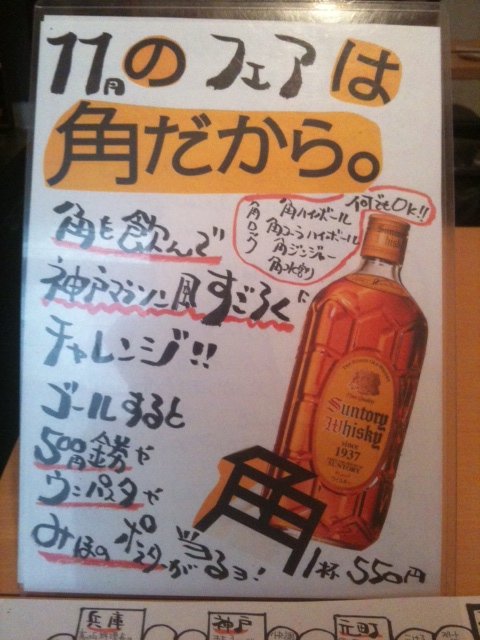 11月のフェアは
角だから。
何でもOK!!
角ハイボール
角コーラハイボール
角ジンジャー
角水割り
角ロック
角を飲んで
神戸マラソン風すごろくに
チャレンジ!!
ゴールすると
500円券や
ウニパスタや
みほのポスターが当るョ!
Suntory
Whisky
Suntory
Whisky
since
1937
SUNTORY
ウイスキー
角
1杯 550円
兵庫
神戸
元町